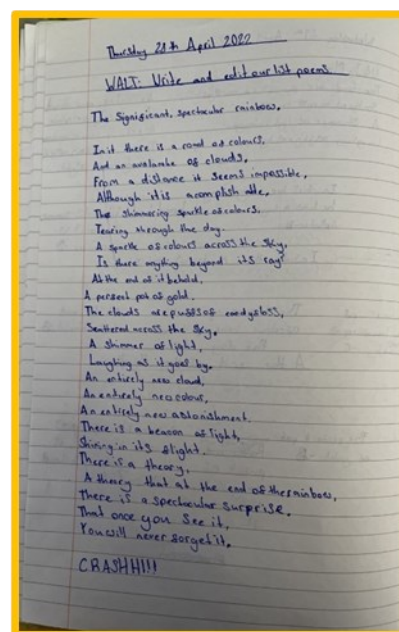 Thursday 28th April 2022
WALT: Write and edit our list poems
The Significant, spectacular rainbow.
In it there is a road of colours,
And an avalanhe of clouds,
From a distance it seems impossible,
Although it is acomplishable,
The shimmering sparkle of colours,
Tearing through the day.
A sparkle of colours across the sky,
Is there anything beyond its ray?
At the end of it behold,
A perfect pot of gold.
The clouds are puffs of candyfloss,
Scattered across the sky,
A shimmer of light,
Laughing as it goes by.
An entirely new cloud,
An entirely new colour,
An entirely new astonishment.
There is a beacon of light,
Shining in its flight.
There is a theory,
A theory that at the end of the rainbow,
there is a spectacular surprise.
That once you see it,
You will never forget it.
CRASHH!!!